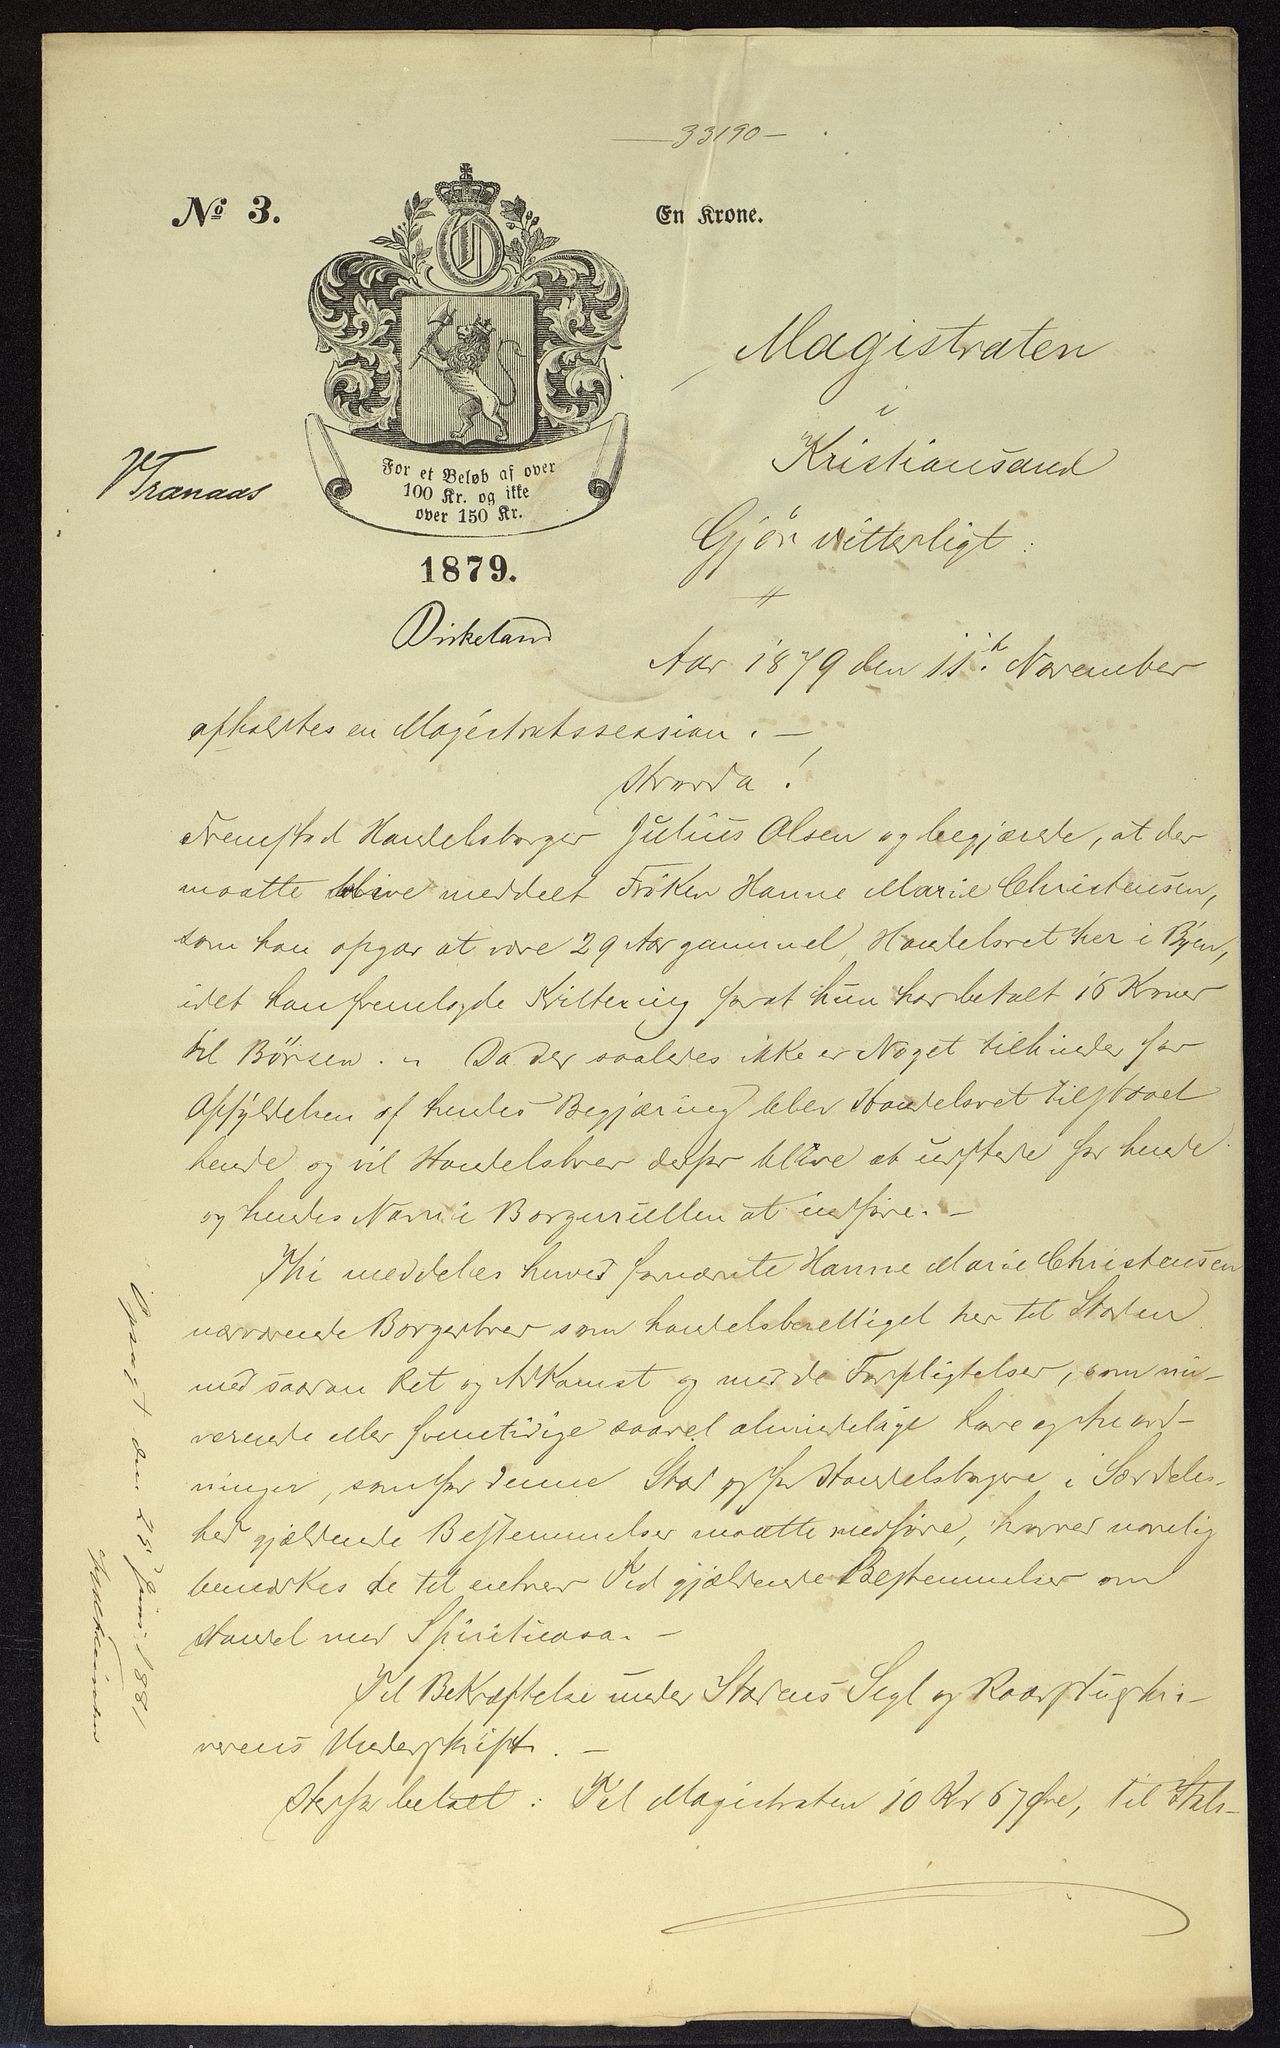 33190
No 3.
En Krone.
Magistraten
i
Kristiansand
Gjör vitterligt:
For et Beløb af over
100 Kr. og ikke
over 150 Kr.
VTranaas
1879.
Birkeland
Aar 1879 den 11h November
afholdtes en Magistratssession. —
Hvorda!
Fremstod Handelsborger Julius Olsen og begjærede, at der
maatte blive meddelt Fröken Hanne Marie Christensen,
som han opgav at være 29 Aar gammel, Handelsret her i Byen,
idet han fremlagde Kvittering for at hun har betalt 16 Kroner
til Börsen. — Da der saaledes ikke er Noget tilhinder for
Opfyldelsen af hendes Begjæring blev Handelsret tilstaaet
hende og vil Handelsbrev derfor blive at udstede for hende
og hendes Navn i Borgerrullen at indföre. —
Thi meddeles herved fornævnte Hanne Marie Christensen
nærværende Borgerbrev som handelsberettiget her til Staden
med saadan Ret og Adkomst og med de Forpligtelser, som nu-
værende eller fremtidige saavel almindelige Love og Anord-
ninger, som for denne Stad og for Handelsborgere i Særdeles-
hed gjældende Bestemmelser maatte medföre, hvorved navnlig
bemærkes de til enhver Tid gjældende Bestemmelser om
Handel med Spirituosa. —
Til Bekræftelse under Stadens Segl og Raadstuskri-
verens Underskrift. —
Herfor betalt: Til Magistraten 10 Kr 67 Øre, til Stats-
Opsagt den 25 Juni 1881